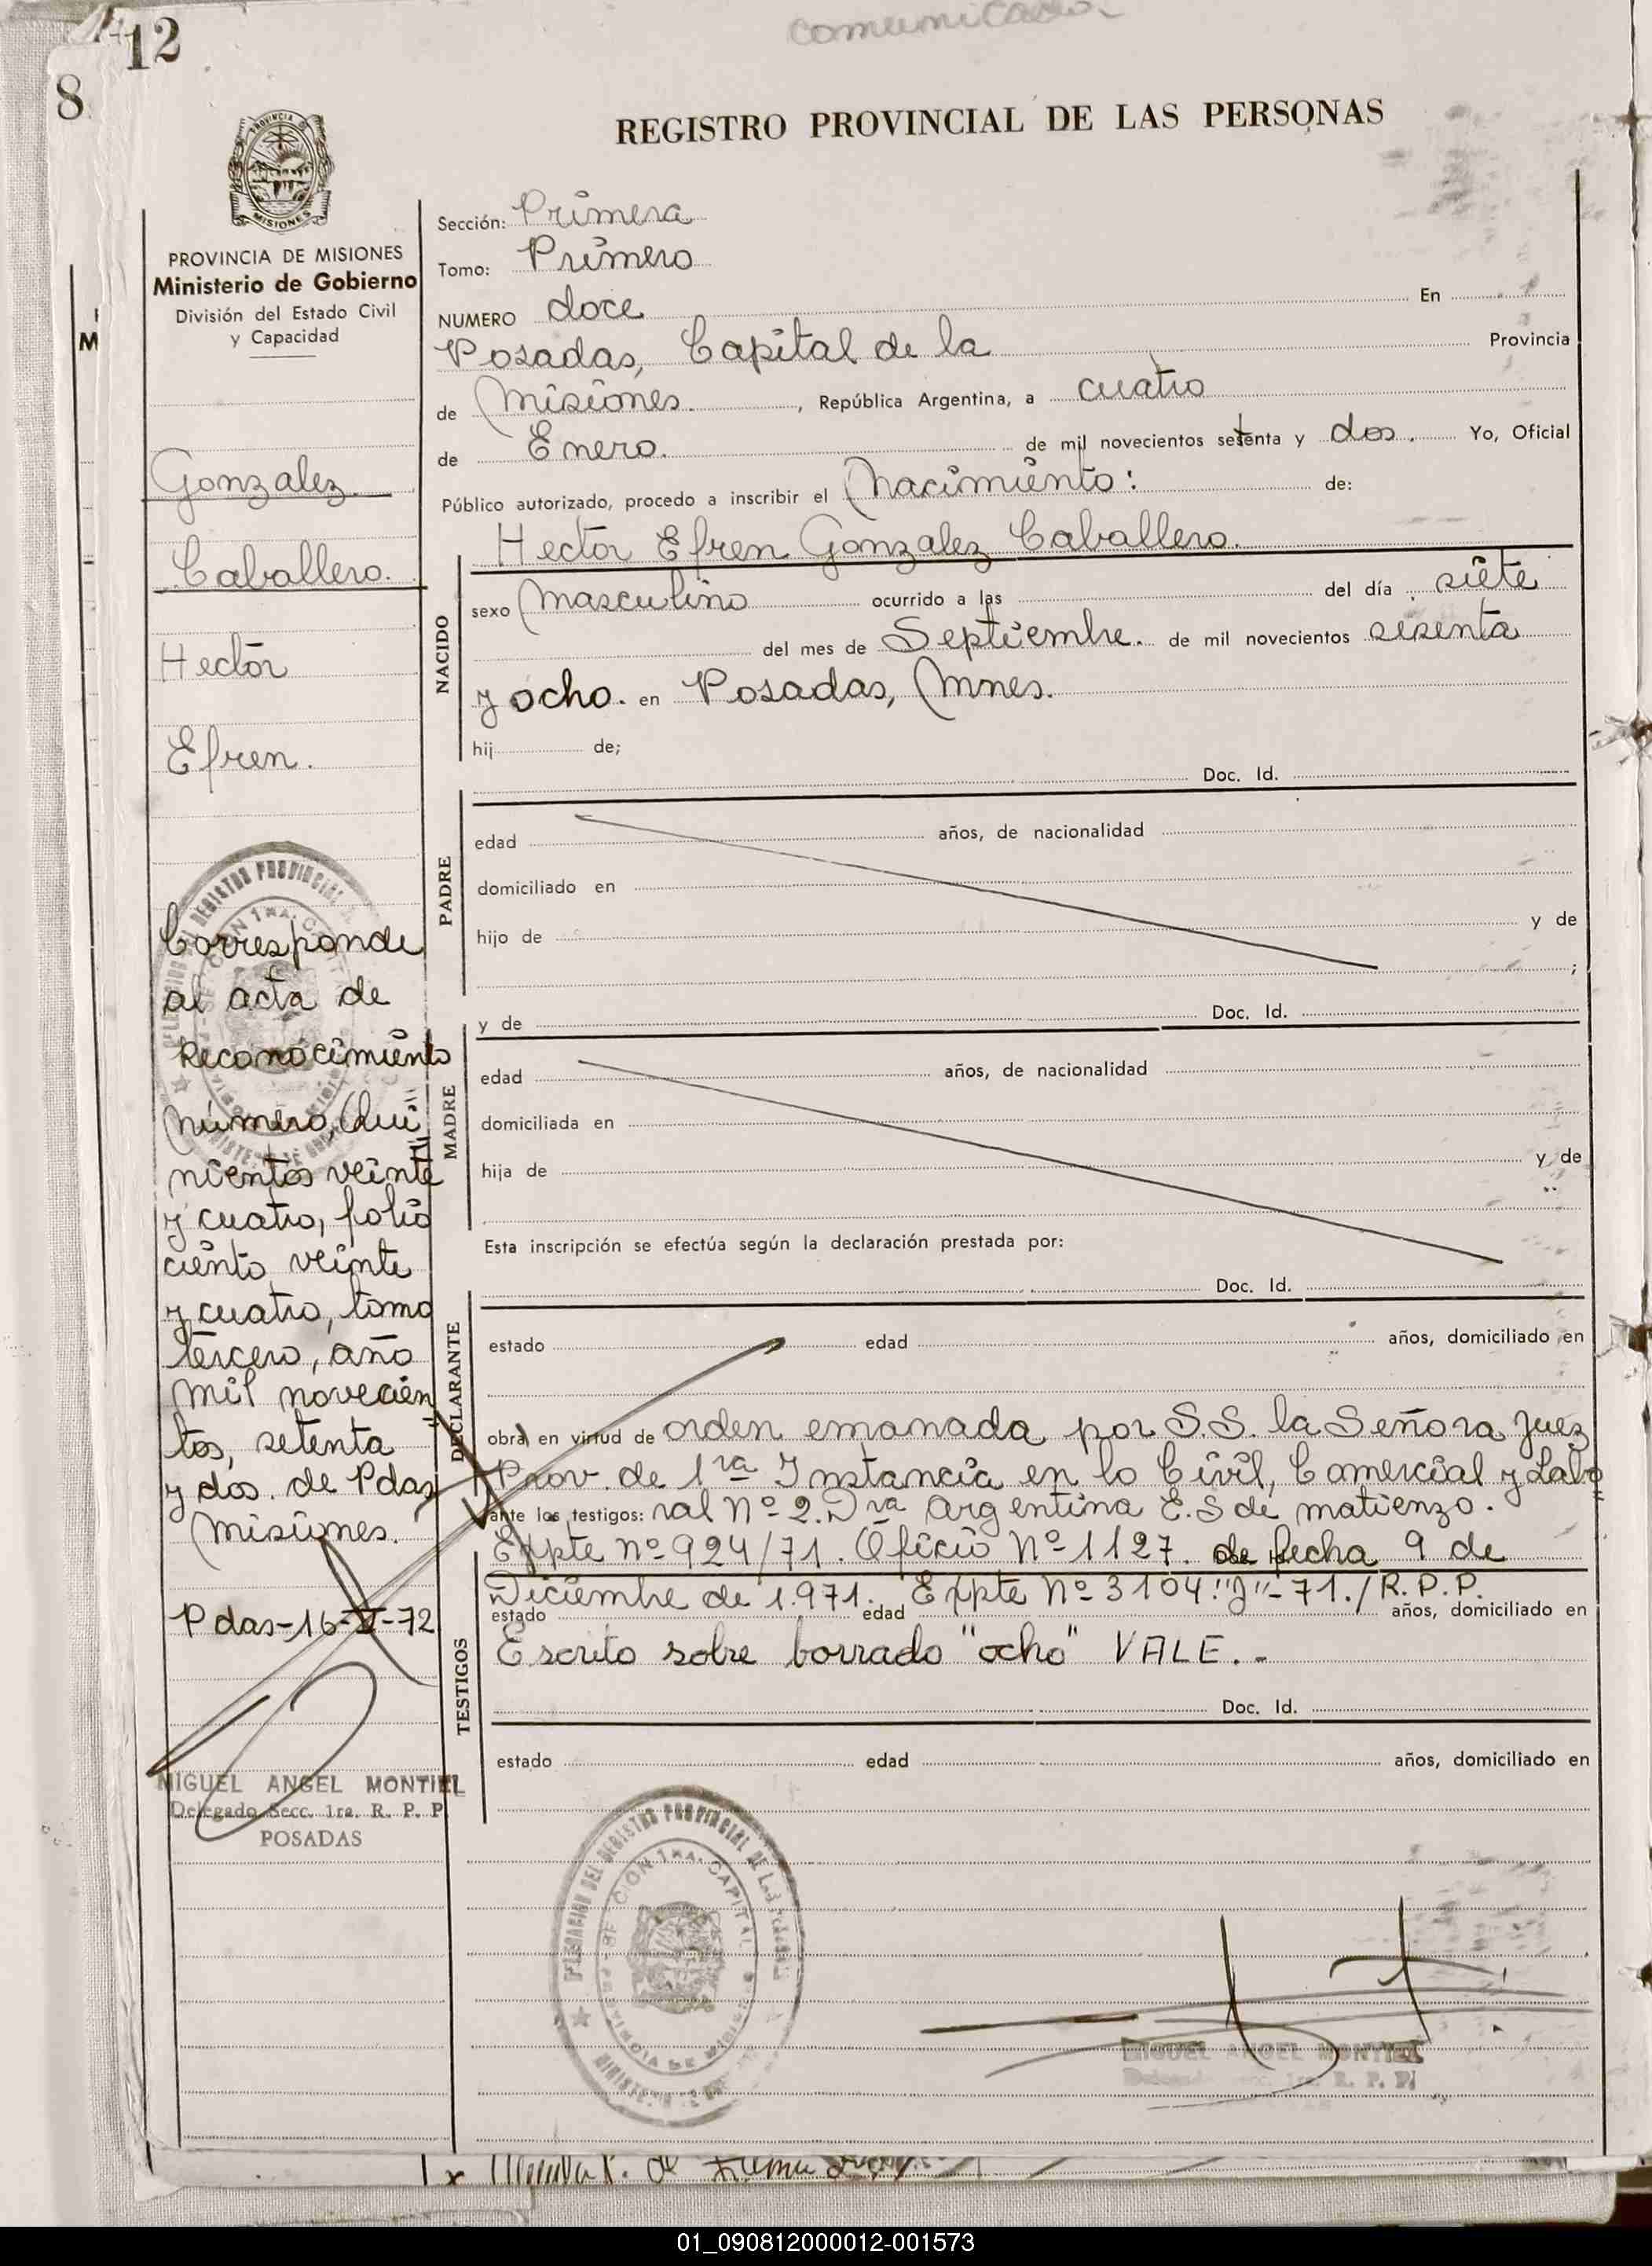 comunicado
12
8
REGISTRO PROVINCIAL DE LAS PERSONAS
PROVINCIA
MISIONES
PROVINCIA DE MISIONES
Ministerio de Gobierno
División del Estado Civil
y Capacidad
Gonzalez
Caballero.
Hector
Efren.
Corresponde
al acta de
Reconocimiento
número, Qui
nientos veinte
y cuatro, folio
ciento veinte
y cuatro, tomo
tercero, año
mil novecien
tos, setenta
y dos. de Pdas
Misiones.
Pdas-16-V-72
MIGUEL ANGEL MONTIEL
Delegado Secc. 1ra. R. P. P.
POSADAS
Sección: Primera
Tomo: Primero
NUMERO doce En
Posadas, Capital de la Provincia
de Misiones , República Argentina, a cuatro
de Enero. de mil novecientos setenta y dos. Yo, Oficial
Público autorizado, procedo a inscribir el Nacimiento: de:
Hector Efren Gonzalez Caballero.
NACIDO
sexo Masculino ocurrido a las del día siete
del mes de Septiembre. de mil novecientos sesenta
y ocho. en Posadas, Mnes.
hij de;
Doc. Id.
PADRE
edad años, de nacionalidad
domiciliado en
hijo de y de
;
y de Doc. Id.
MADRE
edad años, de nacionalidad
domiciliada en
hija de y de
Esta inscripción se efectúa según la declaración prestada por:
Doc. Id.
DECLARANTE
estado edad años, domiciliado en
obra en virtud de orden emanada por S.S. la Señora Juez
Prov. de 1ra Instancia en lo Civil, Comercial y Labo
ante los testigos: ral Nº 2. Dra Argentina E. S de Matienzo.
Expte nº 924/71. Oficio Nº 1127. de fecha 9 de
Diciembre de 1.971. Expte Nº 3104."J"-71./R.P.P.
TESTIGOS
estado edad años, domiciliado en
Escrito sobre borrado "ocho" VALE.-
Doc. Id.
estado edad años, domiciliado en
DELEGACION DEL REGISTRO PROVINCIAL DE LAS
SECCION 1RA. CAPITAL
PROVINCIA DE MISIONES
MIGUEL ANGEL MONTIEL
R. P. P.
01_090812000012-001573